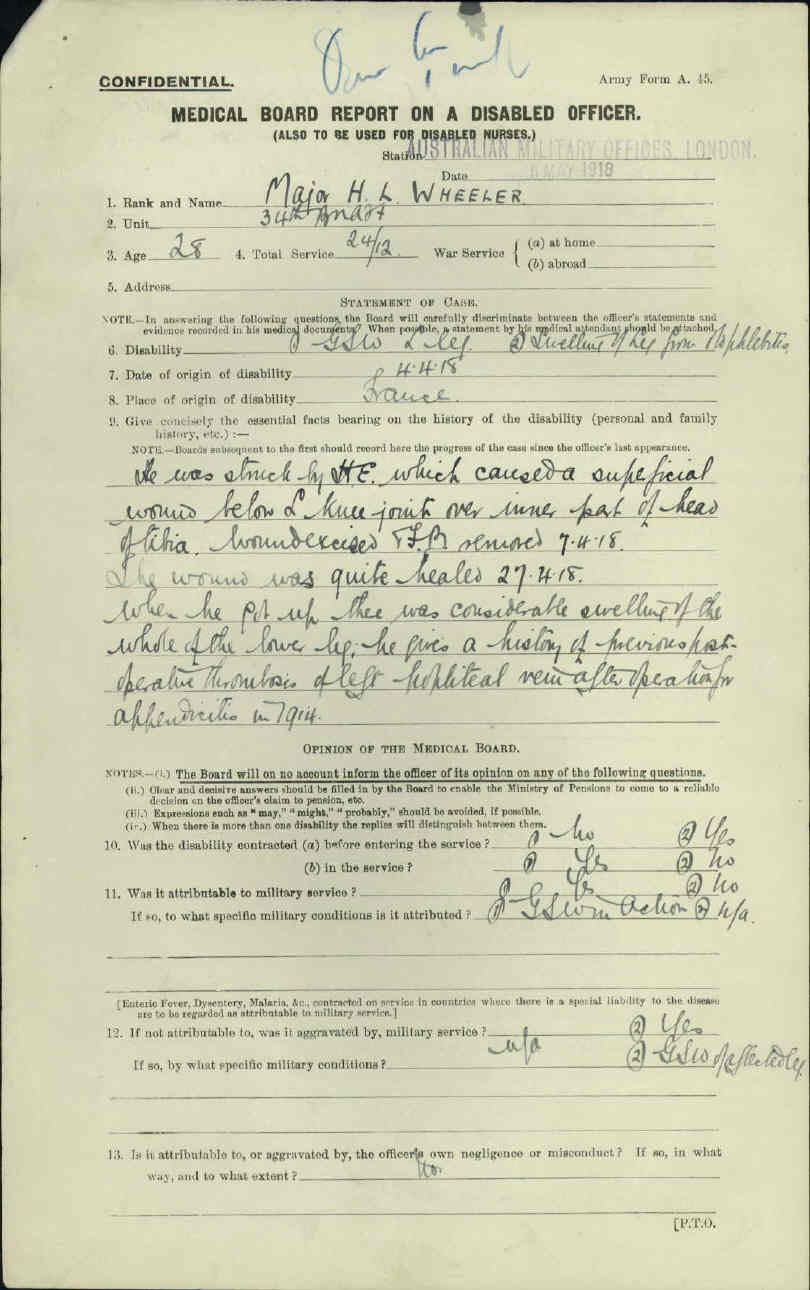 CONFIDENTIAL.
Army Form A. 45.
MEDICAL BOARD REPORT ON A DISABLED OFFICER.
(ALSO TO BE USED FOR DISABLED NURSES.)
Station AUSTRALIAN MILITARY OFFICES, LONDON.
Date MAY 1918
1. Rank and Name Major H. L. WHEELER
2. Unit 34th
3. Age 28 4. Total Service 24/12 War Service { (a) at home
(b) abroad
5. Address
STATEMENT OF CASE.
NOTE.—In answering the following questions, the Board will carefully discriminate between the officer's statements and
evidence recorded in his medical documents. When possible, a statement by his medical attendant should be attached.
6. Disability (1) GSW L leg. (2) Swelling of Leg from
7. Date of origin of disability 4.4.18
8. Place of origin of disability France.
9. Give concisely the essential facts bearing on the history of the disability (personal and family
history, etc.) :—
NOTE.—Boards subsequent to the first should record here the progress of the case since the officer's last appearance.
He was struck by H.E. which caused a superficial
wound below L knee joint over inner part of head
of tibia. Wound excised & F.B. removed 7.4.18.
The wound was quite healed 27.4.18.
When he got up there was considerable swelling of the
whole of the lower leg; he gives a history of previous post-
operative thrombosis of left popliteal vein after operation for
appendicitis in 1914.
OPINION OF THE MEDICAL BOARD.
NOTES.—(i.) The Board will on no account inform the officer of its opinion on any of the following questions.
(ii.) Clear and decisive answers should be filled in by the Board to enable the Ministry of Pensions to come to a reliable
decision on the officer's claim to pension, etc.
(iii.) Expressions such as "may," "might," "probably," should be avoided, if possible.
(iv.) When there is more than one disability the replies will distinguish between them.
10. Was the disability contracted (a) before entering the service? (1) No (2) Yes
(b) in the service? (1) Yes (2) No
11. Was it attributable to military service? (1) Yes (2) No
If so, to what specific military conditions is it attributed? (1) GSW in Action (2) N/a.
[Enteric Fever, Dysentery, Malaria, &c., contracted on service in countries where there is a special liability to the disease
are to be regarded as attributable to military service.]
12. If not attributable to, was it aggravated by, military service? n/a (2) Yes
If so, by what specific military conditions? (2) GSW of affected leg.
13. Is it attributable to, or aggravated by, the officer's own negligence or misconduct? If so, in what
way, and to what extent? No.
[P.T.O.